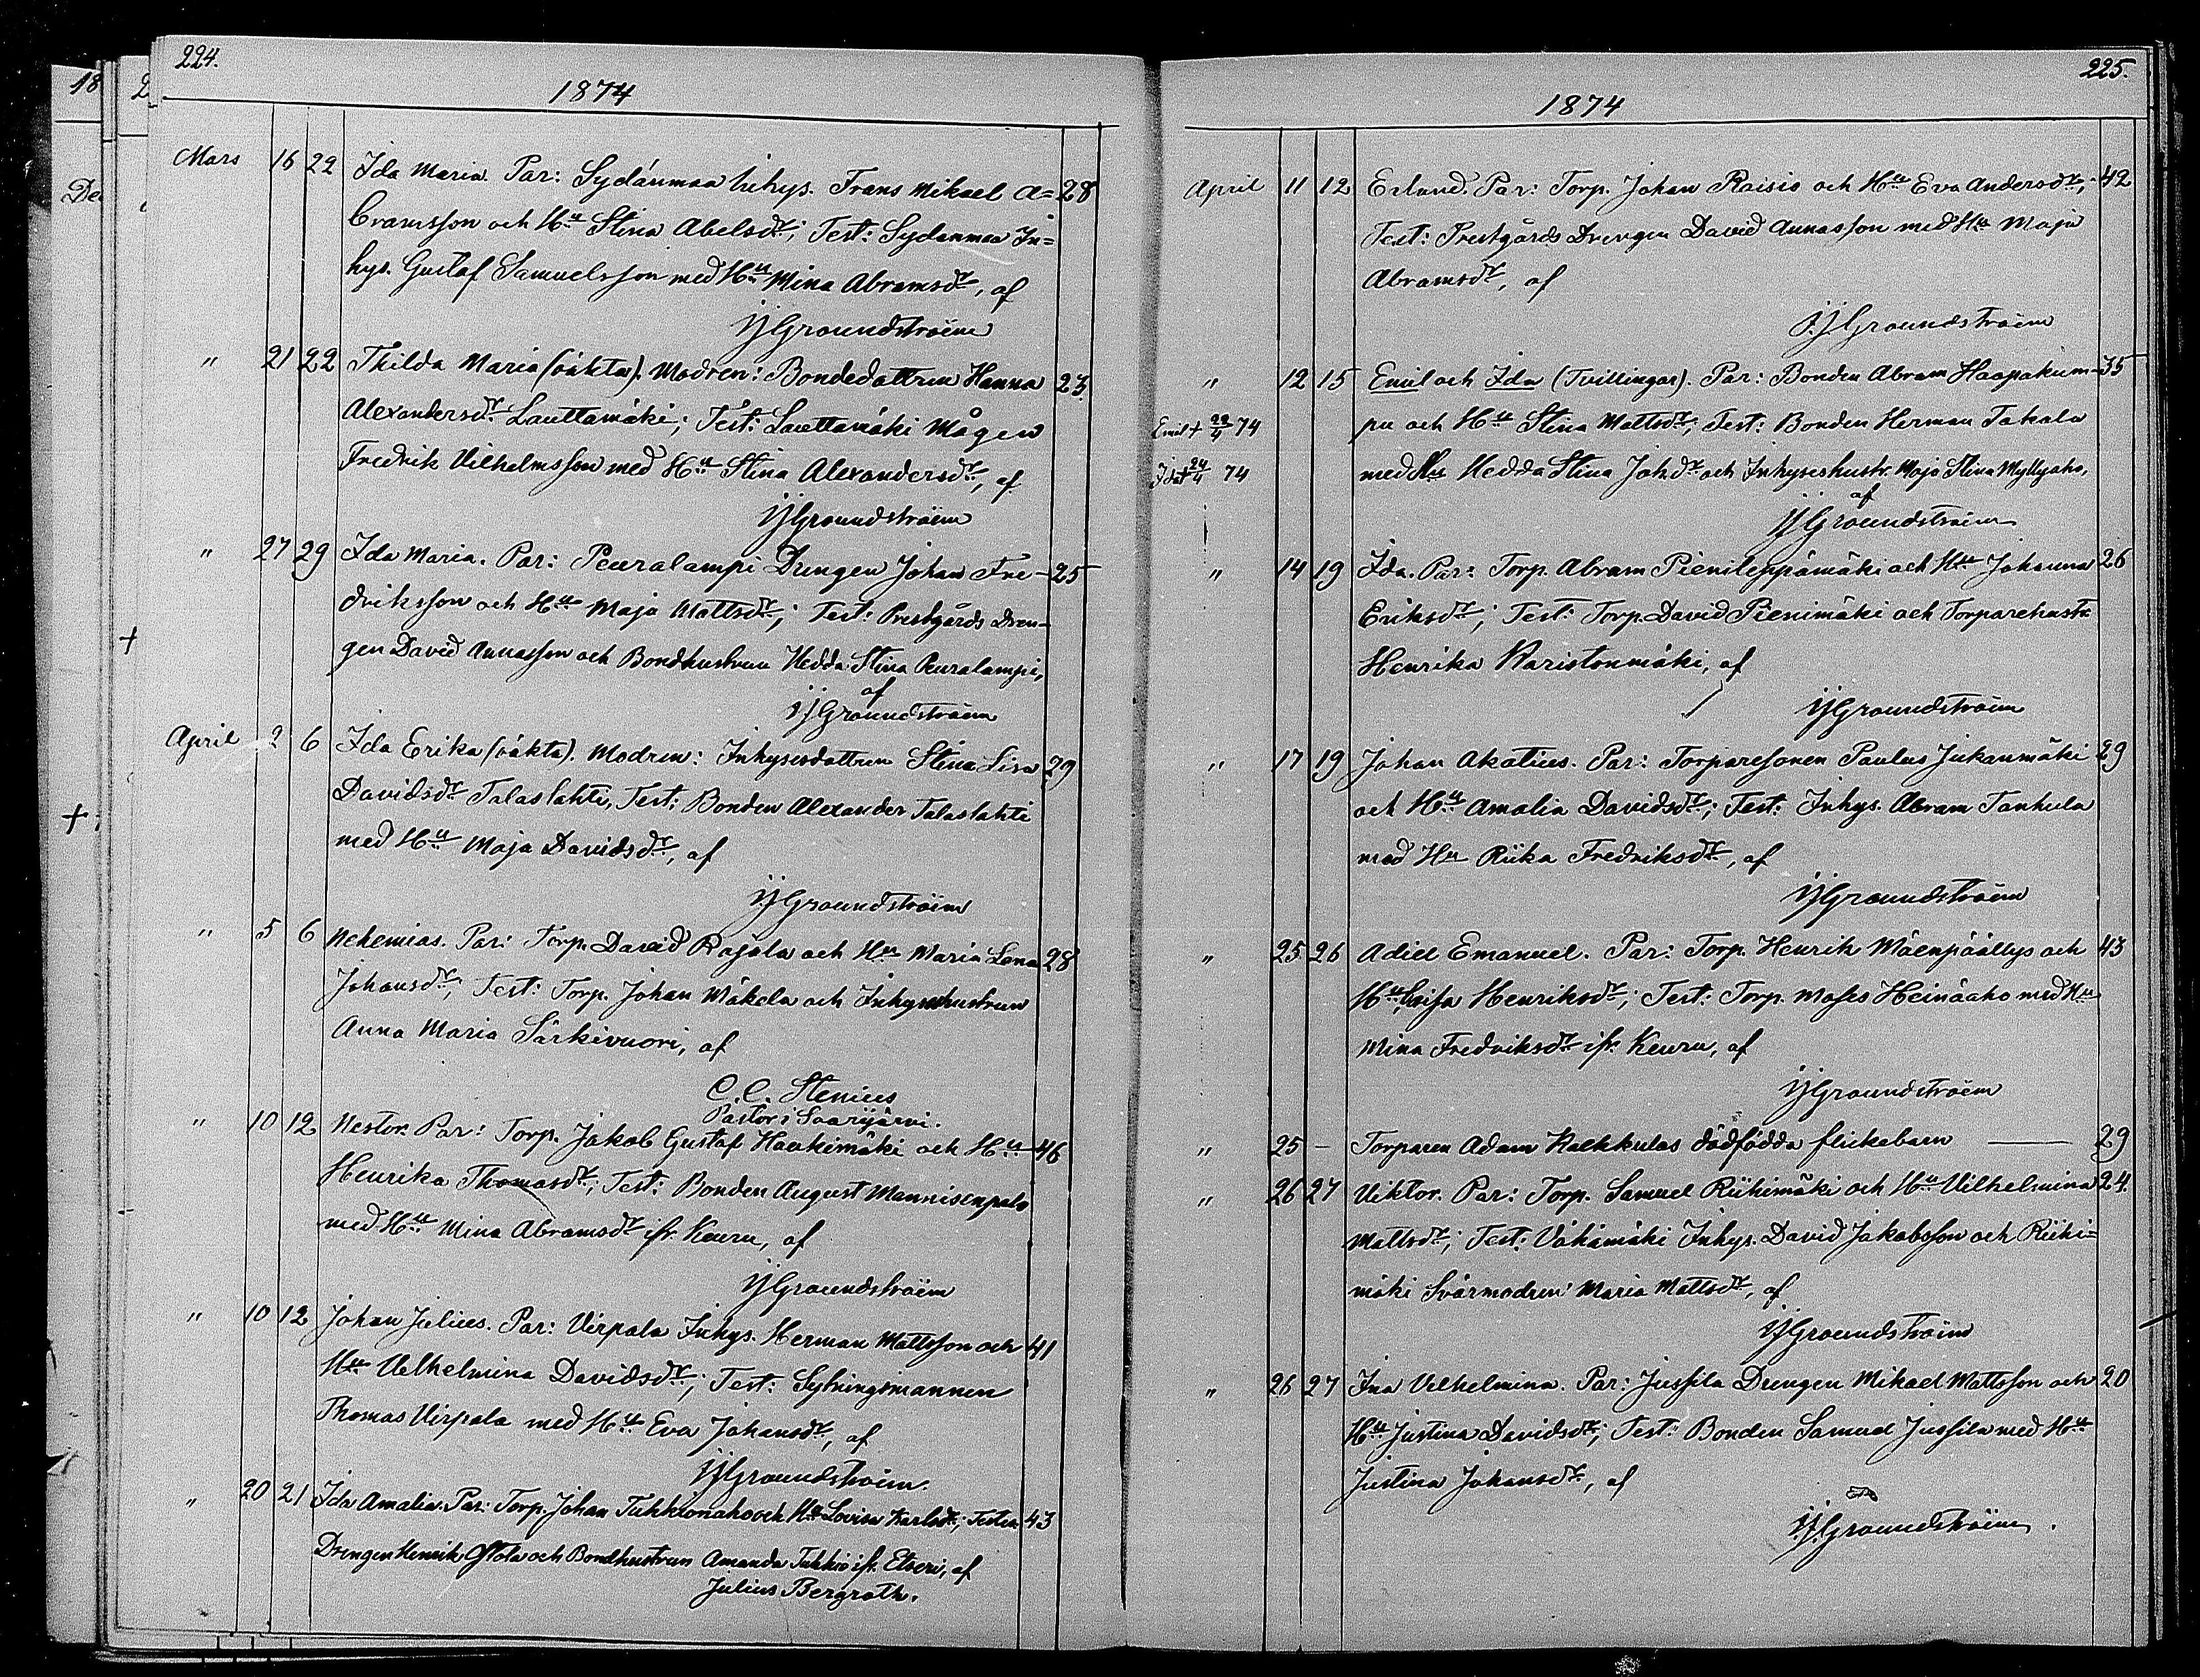 224.
1874
Mars 16 22 Ida Maria. Par: Sydänmaa Inhys. Frans Mikael A= 28
bramsson och Hu Stina Abelsdr; Test: Sydänmaa In=
hys. Gustaf Samuelsson med Hu Mina Abramsdr, af
IJGroundström
" 21 22 Thilda Maria (oäkta). Modren: Bondedottren Hanna 23.
Alexandersdr Lauttamäki; Test: Lauttamäki Mågen
Fredrik Vilhelmsson med Hu Stina Alexandersdr, af
IJGroundström
" 27 29 Ida Maria. Par: Peuralampi Drengen Johan Fre- 25
driksson och Hu Maja Mattsdr; Test: Prestgårds Dren-
gen David Annasson och Bondhustrun Hedda Stina Peuralampi,
af
IJGroundström
April 2 6 Ida Erika (oäkta). Modren: Inhysesdottren Stina Lisa 29
Davidsdr Talaslahti, Test: Bonden Alexander Talaslahti
med Hu Maja Davidsdr, af
IJGroundström
" 5 6 Nehemias. Par: Torp. David Rajala och Hu Maria Lena 28
Johansdr; Test: Torp. Johan Mäkelä och Inhyseshustrun
Anna Maria Särkivuori, af
C. C. Stenius
Pastor i Saarijärvi.
" 10 12 Nestor. Par: Torp. Jakob Gustaf Haukimäki och Hu 46
Henrika Thomasdr; Test: Bonden August Mannisenpalo
med Hu Mina Abramsdr ifr. Keuru, af
IJGroundström
" 10 12 Johan Julius. Par: Virpala Inhys. Herman Mattsson och 41
Hu Vilhelmina Davidsdr; Test: Sytningsmannen
Thomas Virpala med Hu Eva Johansdr, af
IJGroundström.
" 20 21 Ida Amalia. Par: Torp. Johan Tukkionaho och Hu Lovisa Karlsdr; Test: 43
Drengen Henrik Ostola och Bondhustrun Amanda Tukkio ifr. Etseri, af
Julius Bergroth.
225.
1874
April 11 12 Erland. Par: Torp. Johan Raisio och Hu Eva Andersdr; 42
Test: Prestgårds Drengen David Annasson med Hu Maja
Abramsdr, af
IJGroundström
" 12 15 Emil och Ida (Tvillingar). Par: Bonden Abram Haapakum- 35
Emil + 22/4 74 pu och Hu Stina Mattsdr; Test: Bonden Herman Takala
Ida + 24/4 74 med Hu Hedda Stina Johdr och Inhyseshustr. Maja Stina Myllyaho,
af
IJGroundström
" 14 19 Ida. Par: Torp. Abram Pienileppämäki och Hu Johanna 26
Eriksdr; Test: Torp. David Pienimäki och Torparehustr.
Henrika Karistonmäki, af
IJGroundström
" 17 19 Johan Akatius. Par: Torparesonen Paulus Jukanmäki 29
och Hu Amalia Davidsdr; Test: Inhys. Abram Tanhula
med Hu Riika Fredriksdr, af
IJGroundström
" 25 26 Adiel Emanuel. Par: Torp. Henrik Mäenpäällys och 43
Hu Loisa Henriksdr; Test: Torp. Moses Heinäaho med Hu
Mina Fredriksdr ifr. Keuru, af
IJGroundström
" 25 – Torparen Adam Kalkkulas dödfödda flickebarn — 29
" 26 27 Viktor. Par: Torp. Samuel Riihimäki och Hu Vilhelmina 24.
Mattsdr; Test: Vähämäki Inhys. David Jakobsson och Riihi=
mäki Svärmodren Maria Mattsdr, af
IJGroundström
" 26 27 Ina Vilhelmina. Par: Jussila Drengen Mikael Mattsson och 20
Hu Justina Davidsdr; Test: Bonden Samuel Jussila med Hu
Justina Johansdr, af
IJGroundström.